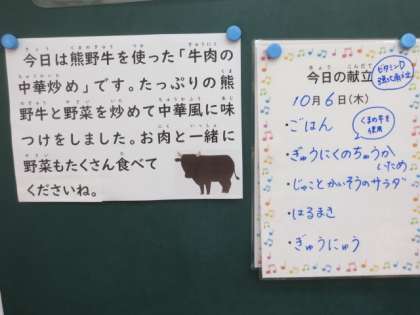 今日は熊野牛を使った「牛肉の
中華炒め」です。たっぷりの熊
野牛と野菜を炒めて中華風に味
つけをしました。お肉と一緒に
野菜もたくさん食べて
くださいね。
今日の献立
ビタミンD
強化献立
10月6日(木)
・ごはん
くまの牛を
使用
・ぎゅうにくのちゅうか
いため
・じゃことかいそうのサラダ
・はるまき
・ぎゅうにゅう